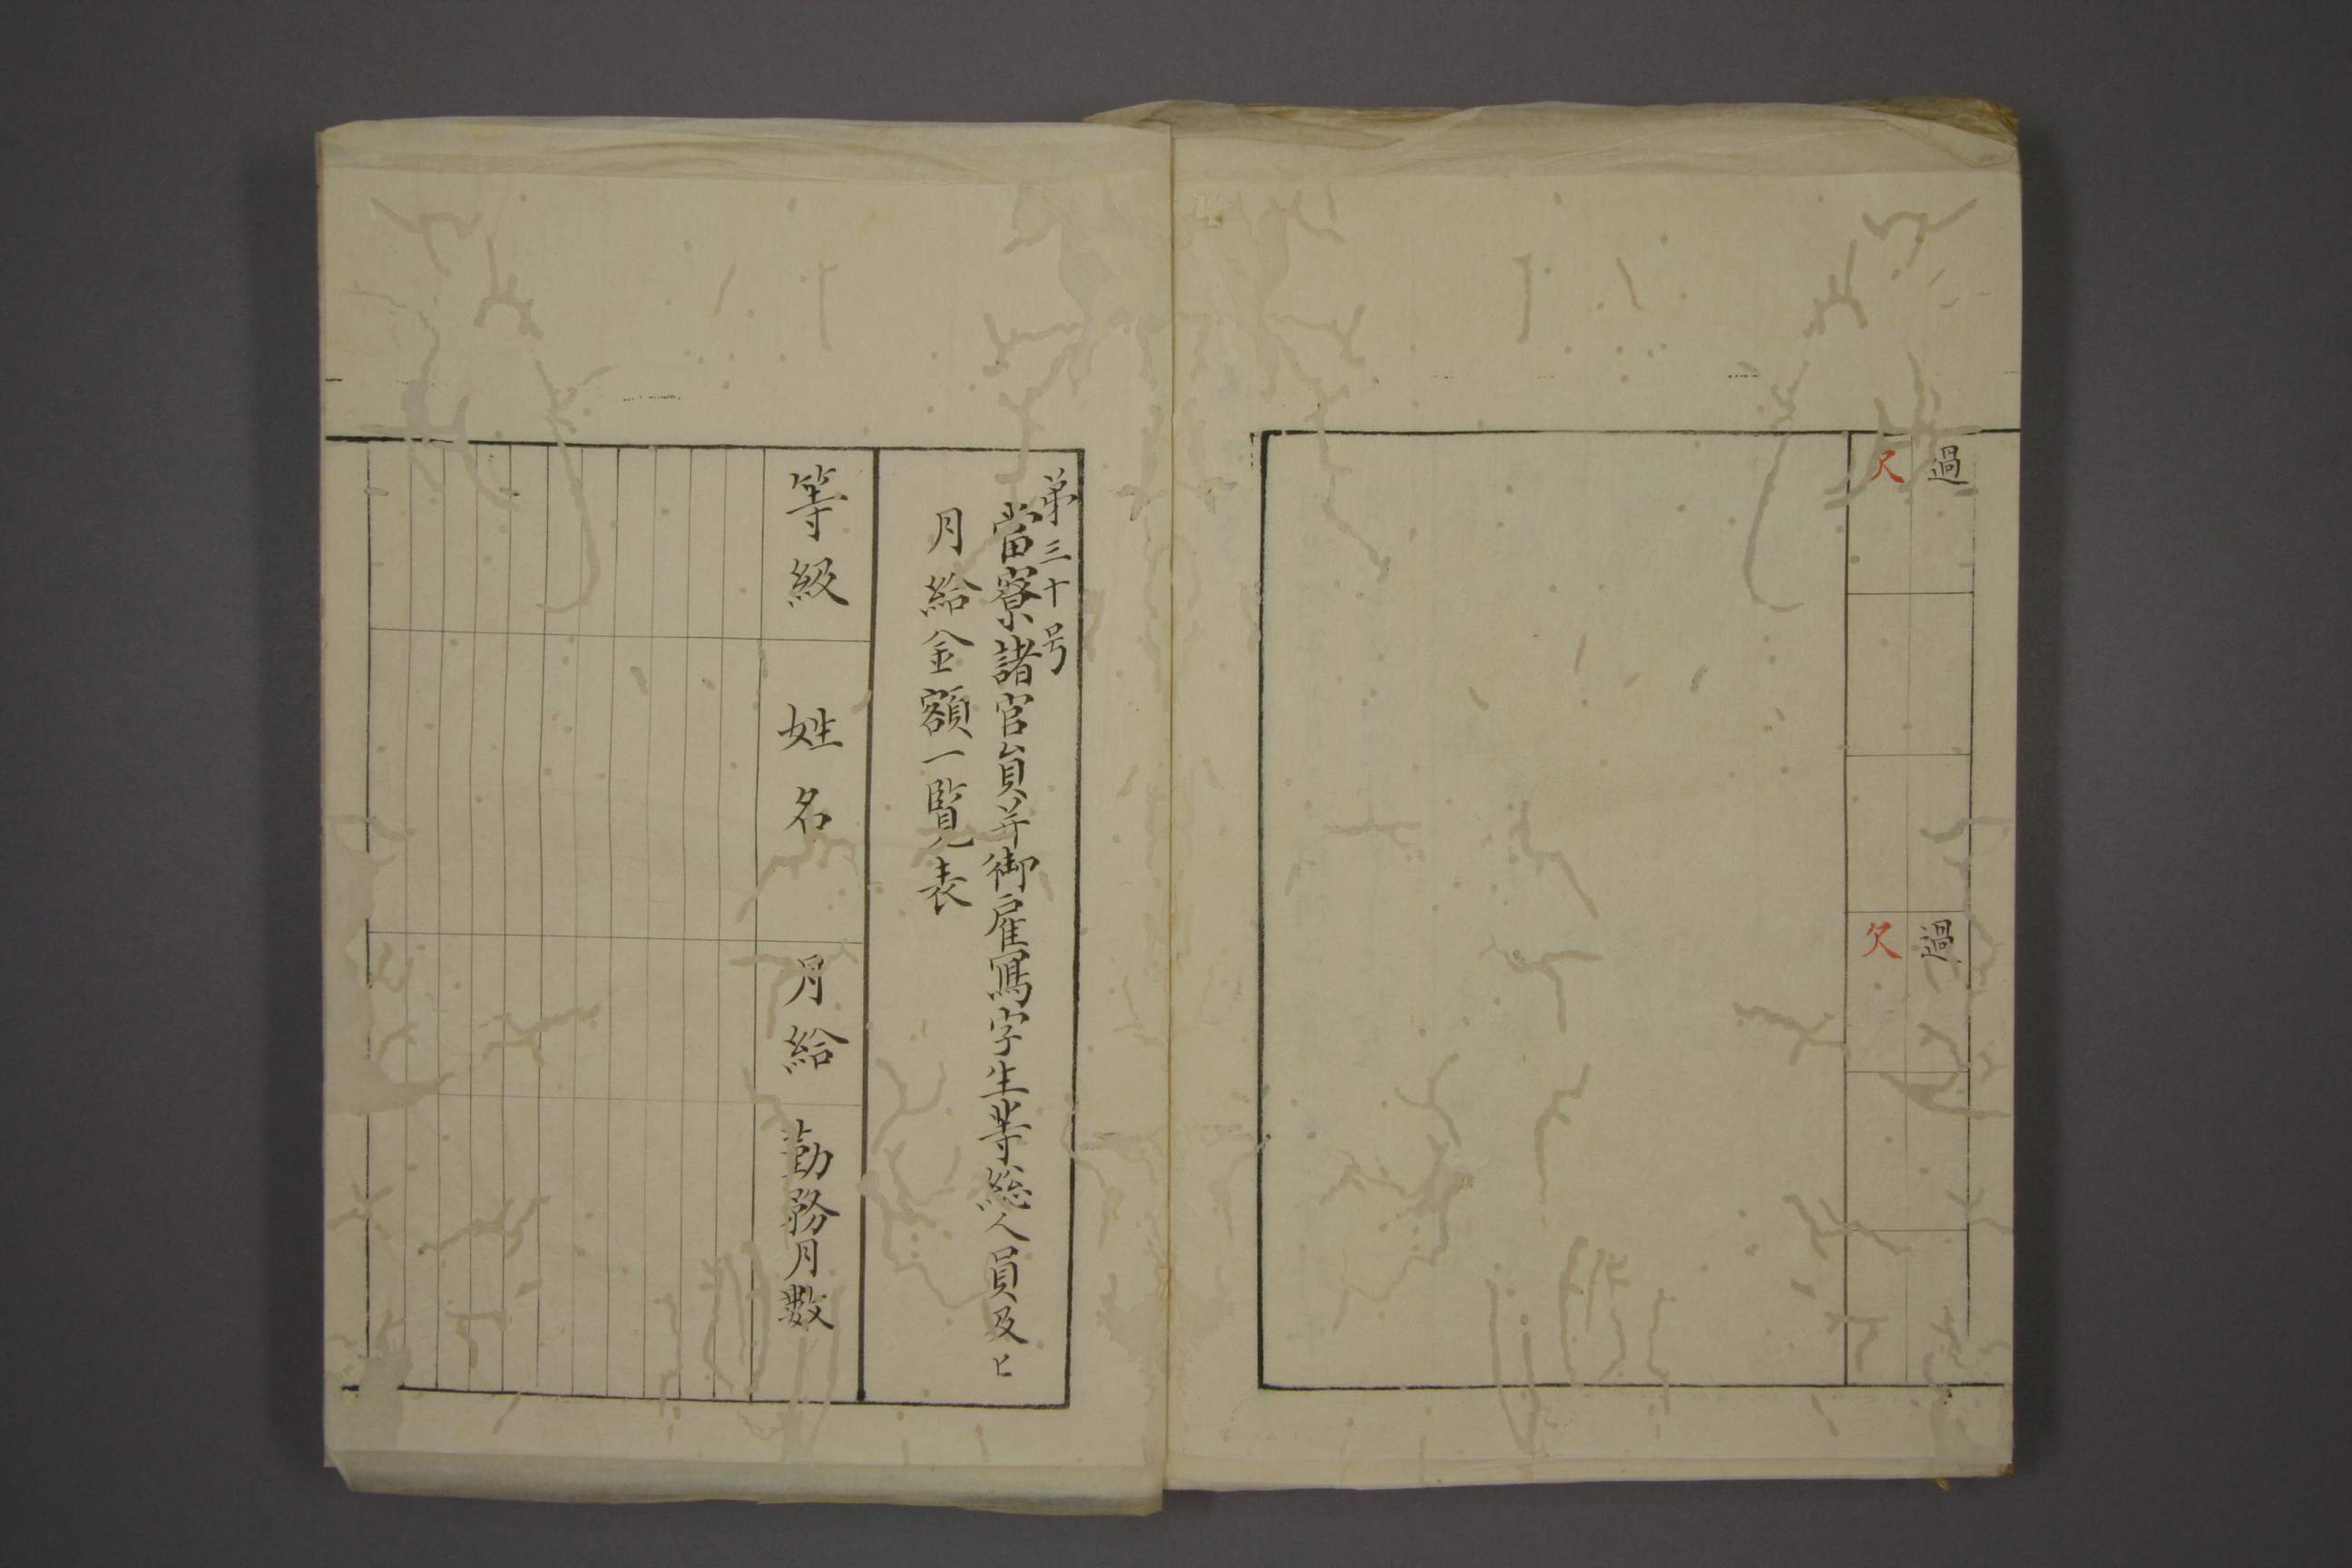 過
欠
過
欠
第三十号
當寮諸官員并御雇寫字生等総人員及ヒ
月給金額一覧表
等級
姓名
月給
勤務月數